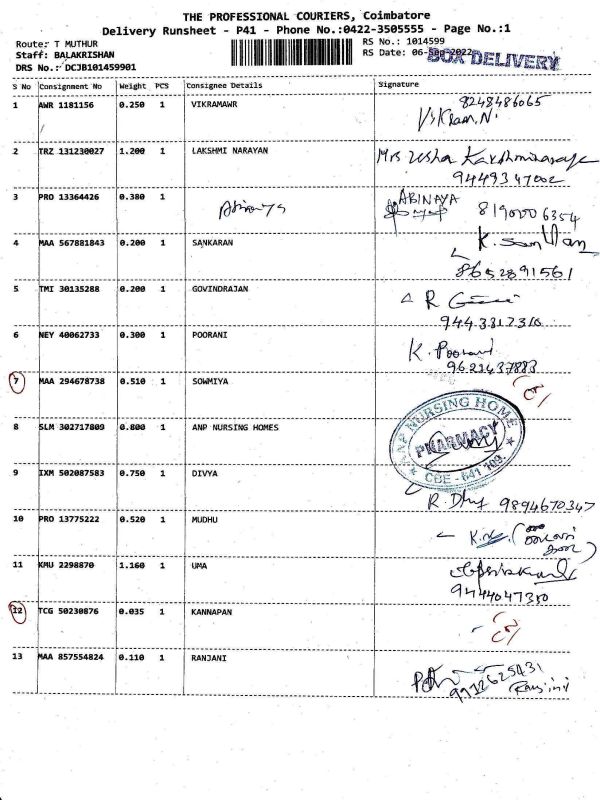 THE PROFESSIONAL COURIERS, Coimbatore
Delivery Runsheet - P41 - Phone No.:0422-3505555 - Page No.:1
Route: T MUTHUR
RS No.: 1014599
Staff: BALAKRISHAN
RS Date: 06-Sep-2022
BOX DELIVERY
DRS No.: DCJB101459901
S No Consignment No Weight PCS Consignee Details Signature
1 AWR 1181156 0.250 1 VIKRAMAWR 8248486065
2 TRZ 131230027 1.200 1 LAKSHMI NARAYAN Mrs Usha
9449347002
3 PRO 13364426 0.380 1 ABINAYA
4 MAA 567881843 0.200 1 SANKARAN
8652891561
5 TMI 30135288 0.200 1 GOVINDRAJAN R
6 NEY 40062733 0.300 1 POORANI K. Poorani
7 MAA 294678738 0.510 1 SOWMIYA
8 SLM 302717809 0.800 1 ANP NURSING HOMES
ANP NURSING HOME
PHARMACY
CBE - 641 109.
9 IXM 502087583 0.750 1 DIVYA
9894670347
10 PRO 13775222 0.520 1 MUDHU
11 KMU 2298870 1.160 1 UMA
9444047350
12 TCG 50230876 0.035 1 KANNAPAN
13 MAA 857554824 0.110 1 RANJANI